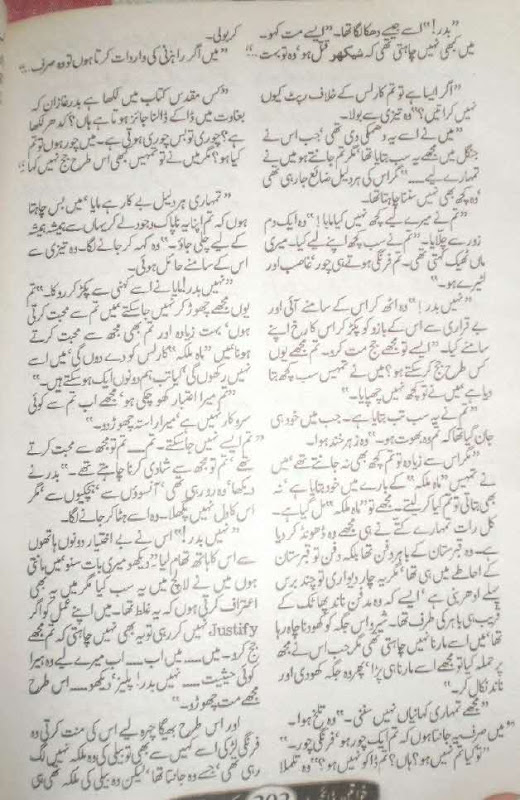 ”بدر!“ اسے جیسے دھکا لگا تھا۔ ”ایسے مت کہو۔
میں کبھی نہیں چاہتی تھی کہ شیکھر قتل ہو وہ تو بہت ...“
”اگر ایسا ہے تو تم کارلس کے خلاف رپٹ کیوں
نہیں کراتیں؟“ وہ تیزی سے بولا۔
”میں نے اسے یہ دھمکی دی تھی‘ جب اس نے
جنگل میں مجھے یہ سب بتایا تھا‘ مگر تم جانتے ہو میں نے
تمہارے لیے ...“ مگر اس کی ہر دلیل ضائع جا رہی تھی
وہ کچھ بھی نہیں سننا چاہتا تھا۔
”تم نے میرے لیے کچھ نہیں کیا مایا!“ وہ ایک دم
زور سے چلایا۔ ”تم نے سب کچھ اپنے لیے کیا۔ میری
ماں ٹھیک کہتی تھی۔ تم فرنگی ہوتے ہی چور‘ غاصب اور
لٹیرے ہو۔“
”نہیں بدر!“ وہ اٹھ کر اس کے سامنے آئی اور
بے قراری سے اس کے بازو کو پکڑ کر اس کا رخ اپنے
سامنے کیا۔ ”ایسے تو مجھے جج مت کرو۔ تم مجھے یوں
کس طرح جج کر سکتے ہو؟ میں نے تمہیں سب کچھ بتا
دیا ہے میں نے تو کچھ نہیں چھپایا۔“
”تم نے یہ سب تب بتایا ہے۔ جب میں خود ہی
جان گیا تھا کہ تم وہ بھوت ہو۔“ وہ زہر خند ہوا۔
”مگر اس سے زیادہ تو تم کچھ بھی نہ جانتے تھے‘ میں
نے تمہیں ”ماہ ملکہ“ کے بارے میں خود بتایا ہے‘ نہ
بھی بتاتی تو تم کیا کر لیتے۔ مجھے تو ”ماہ ملکہ“ مل گیا ہے۔
کل رات تمہارے کتے نے ہی مجھے وہ ڈھونڈ کر دیا
ہے۔ وہ قبرستان کے باہر دفن تھا بلکہ دفن تو قبرستان
کے احاطے میں ہی تھا‘ مگر یہ چار دیواری تو چند برس
پہلے ادھر بنی ہے‘ ایسے کہ وہ مدفن نانڈ پھاٹک کے
قریب ہی باہر کی طرف تھا۔ شیرو اس جگہ کو کھودنا چاہ رہا
تھا‘ میں اسے مارنا نہیں چاہتی تھی مگر جب اس نے مجھ
پر حملہ کیا تو مجھے اسے مارنا ہی پڑا‘ پھر وہ جگہ کھودی اور
نانڈ نکال کر۔“
”مجھے تمہاری کہانیاں نہیں سننی۔“ وہ تلخ ہوا۔
”میں صرف یہ جانتا ہوں کہ تم ایک چور ہو‘ فرنگی چور۔“
”تو کیا تم نہیں ہو؟ ہاں؟ تم ڈاکو نہیں ہو؟“ وہ تلملا
کر بولی۔
”میں اگر راہزنی کی واردات کرتا ہوں تو وہ صرف ...“
”کس مقدس کتاب میں لکھا ہے بدر غازان کہ
بغاوت میں ڈاکے ڈالنا جائز ہوتا ہے ہاں؟ کدھر لکھا
ہے؟ چوری تو بس چوری ہوتی ہے۔ میں چور ہوں تو تم
کیا ہو؟ مگر میں نے تو تمہیں کبھی اس طرح جج نہیں کیا۔“
”تمہاری ہر دلیل بے کار ہے مایا‘ میں بس چاہتا
ہوں کہ تم اپنا یہ ناپاک وجود لے کر یہاں سے ہمیشہ ہمیشہ
کے لیے چلی جاؤ۔“ وہ کہہ کر جانے لگا۔ وہ تیزی سے
اس کے سامنے حائل ہوئی۔
”نہیں بدر! مایا نے اسے کہنی سے پکڑ کر روکا۔ ”تم
یوں مجھے چھوڑ کر نہیں جا سکتے‘ میں تم سے محبت کرتی
ہوں‘ بہت زیادہ اور تم بھی مجھ سے محبت کرتے
ہونا‘ میں ”ماہ ملکہ“ کارلس کو دے دوں گی‘ میں اسے
نہیں رکھوں گی‘ کیا تب ہم دونوں ایک ہو سکتے ہیں۔“
”تم میرا اعتبار کھو چکی ہو‘ مجھے اب تم سے کوئی
سروکار نہیں ہے‘ میرا راستہ چھوڑ دو۔“
”تم ایسے نہیں جا سکتے۔ تم ... تم تو مجھ سے محبت کرتے
تھے‘ تم تو مجھ سے شادی کرنا چاہتے تھے۔“ بدر نے
دیکھا‘ وہ رو رہی تھی‘ آنسوؤں سے‘ ہچکیوں سے‘ مگر
اس کا دل نہیں پگھلا۔ وہ اسے ہٹا کر جانے لگا۔
”نہیں بدر!“ اس نے بے اختیار دونوں ہاتھوں
سے اس کا ہاتھ تھام لیا۔ ”دیکھو میری بات سنو‘ میں مانتی
ہوں میں نے لالچ میں یہ سب کیا مگر میں یہ بھی
اعتراف کرتی ہوں کہ یہ غلط تھا۔ میں اپنے عمل کو اگر
Justify نہیں کر رہی تو یہ بھی نہیں چاہتی کہ تم مجھے
جج کرو۔ میں ... میں اب ... اب میرے لیے وہ ہیرا
کوئی حیثیت ... نہیں بدر! پلیز‘ دیکھو ... اس طرح
مجھے مت چھوڑو۔“
اور اس طرح بھیگا چہرہ لیے اس کی منت کرتی وہ
فرنگی لڑکی اسے کہیں سے بھی تو بیلی کی وہ ملکہ نہیں لگ
رہی تھی‘ جسے وہ جانتا تھا‘ لیکن وہ بیلی کی ملکہ تھی ہی